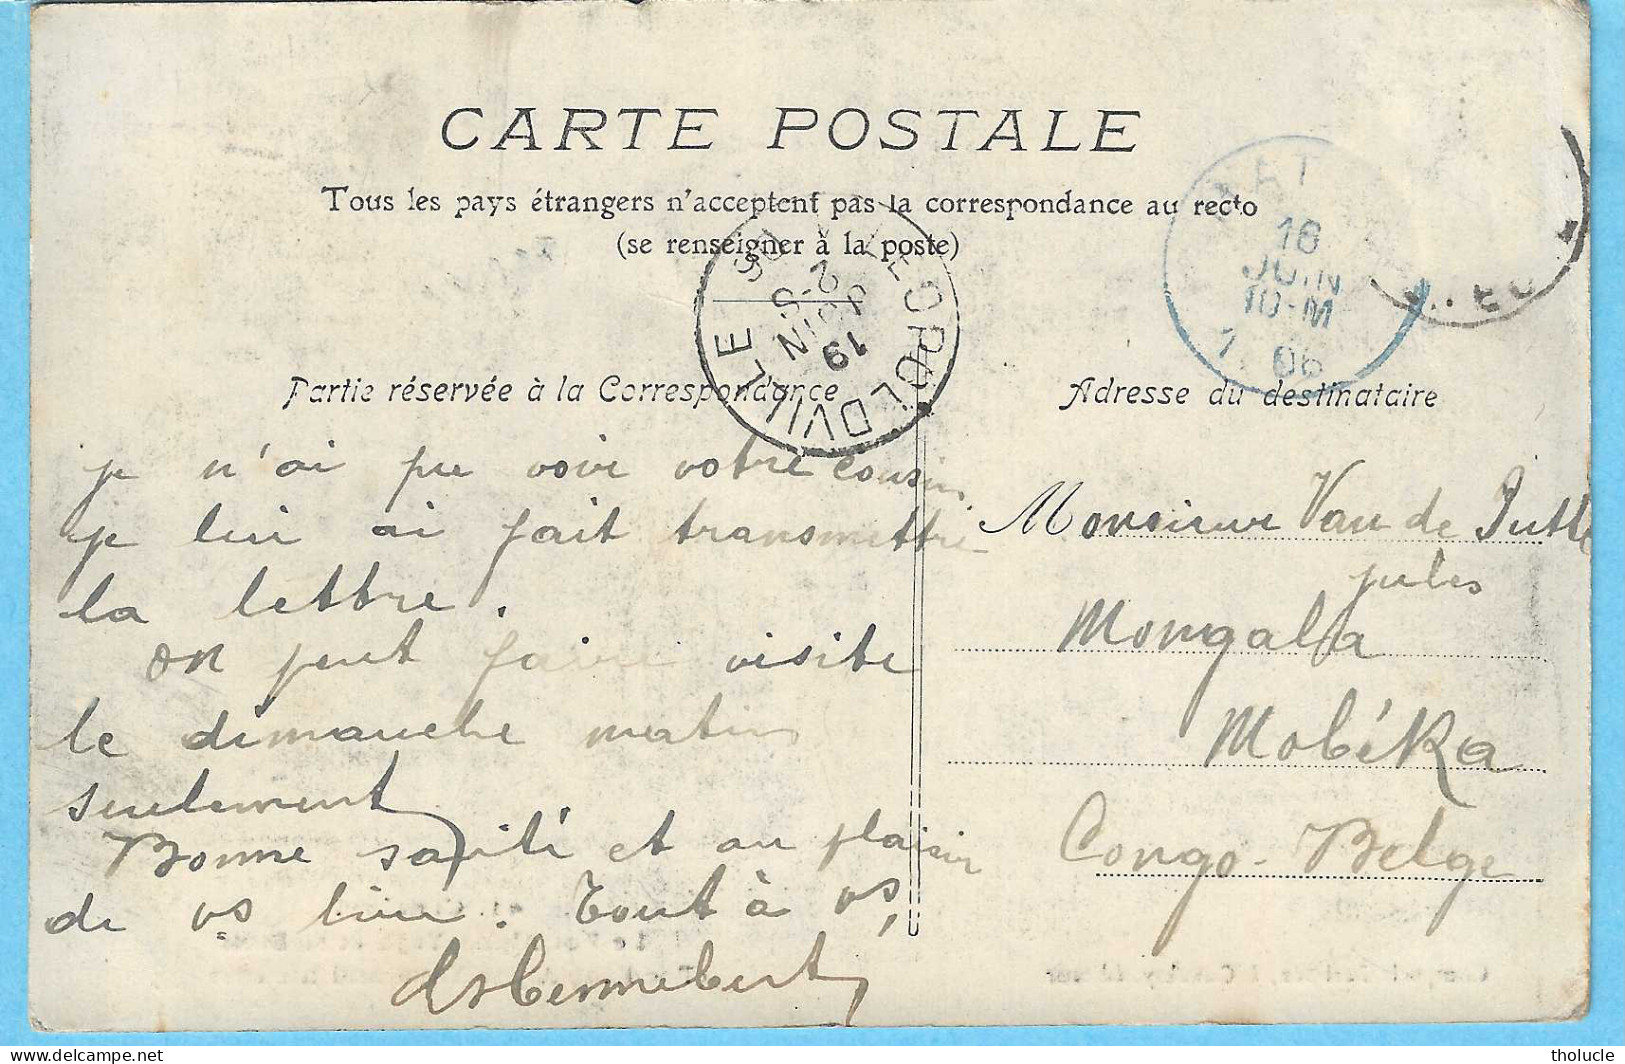 CARTE POSTALE
Tous les pays étrangers n'acceptent pas la correspondance au recto
(se renseigner à la poste)
16
JUIN
10-M
06
LÉOPOLDVILLE
19
JUIN
Partie réservée à la Correspondance
Adresse du destinataire
je n'ai pu voir votre cousin
je lui ai fait transmettre
la lettre.
on peut faire visite
le dimanche matin
seulement
Bonne santé et au plaisir
de vs lire. Tout à vs,
Monsieur Van de Putte
jules
Mongala
Mobéka
Congo-Belge
tholucle